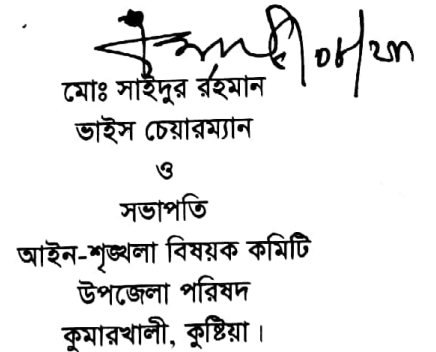 মোঃ সাইদুর রহমান
ভাইস চেয়ারম্যান
ও
সভাপতি
আইন-শৃঙ্খলা বিষয়ক কমিটি
উপজেলা পরিষদ
কুমারখালী, কুষ্টিয়া।